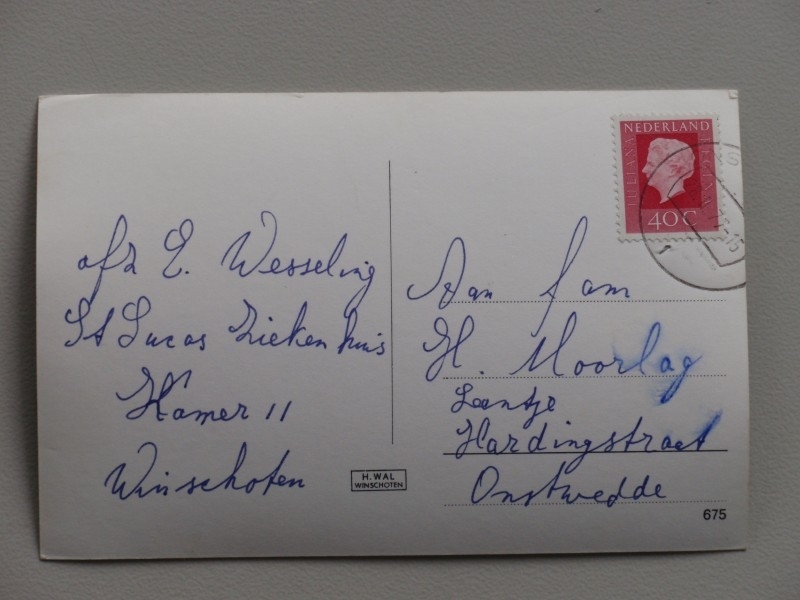 afz E. Wesseling
St Lucas Ziekenhuis
Kamer 11
Winschoten
H. WAL
WINSCHOTEN
NEDERLAND
JULIANA
REGINA
40 C
Aan fam
H. Moorlag
Leentje
Hardingstraat
Onstwedde
675